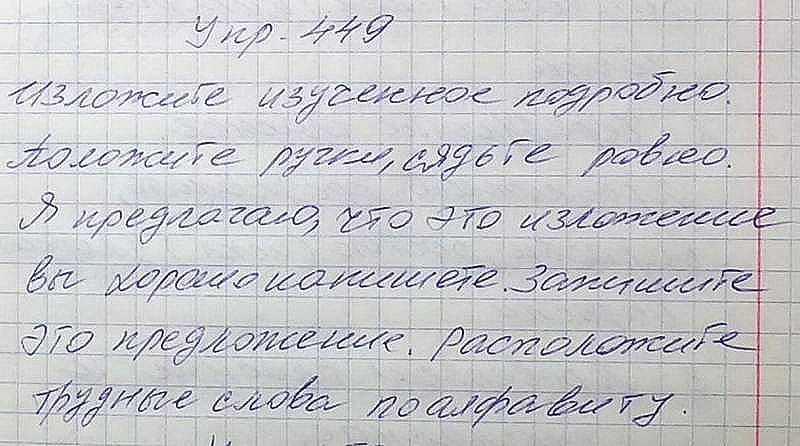 Упр. 449
Изложите изученное подробно.
Положите ручки, сядьте ровно.
Я предлагаю, что это изложение
вы хорошо напишете. Запишите
это предложение. Расположите
трудные слова по алфавиту.